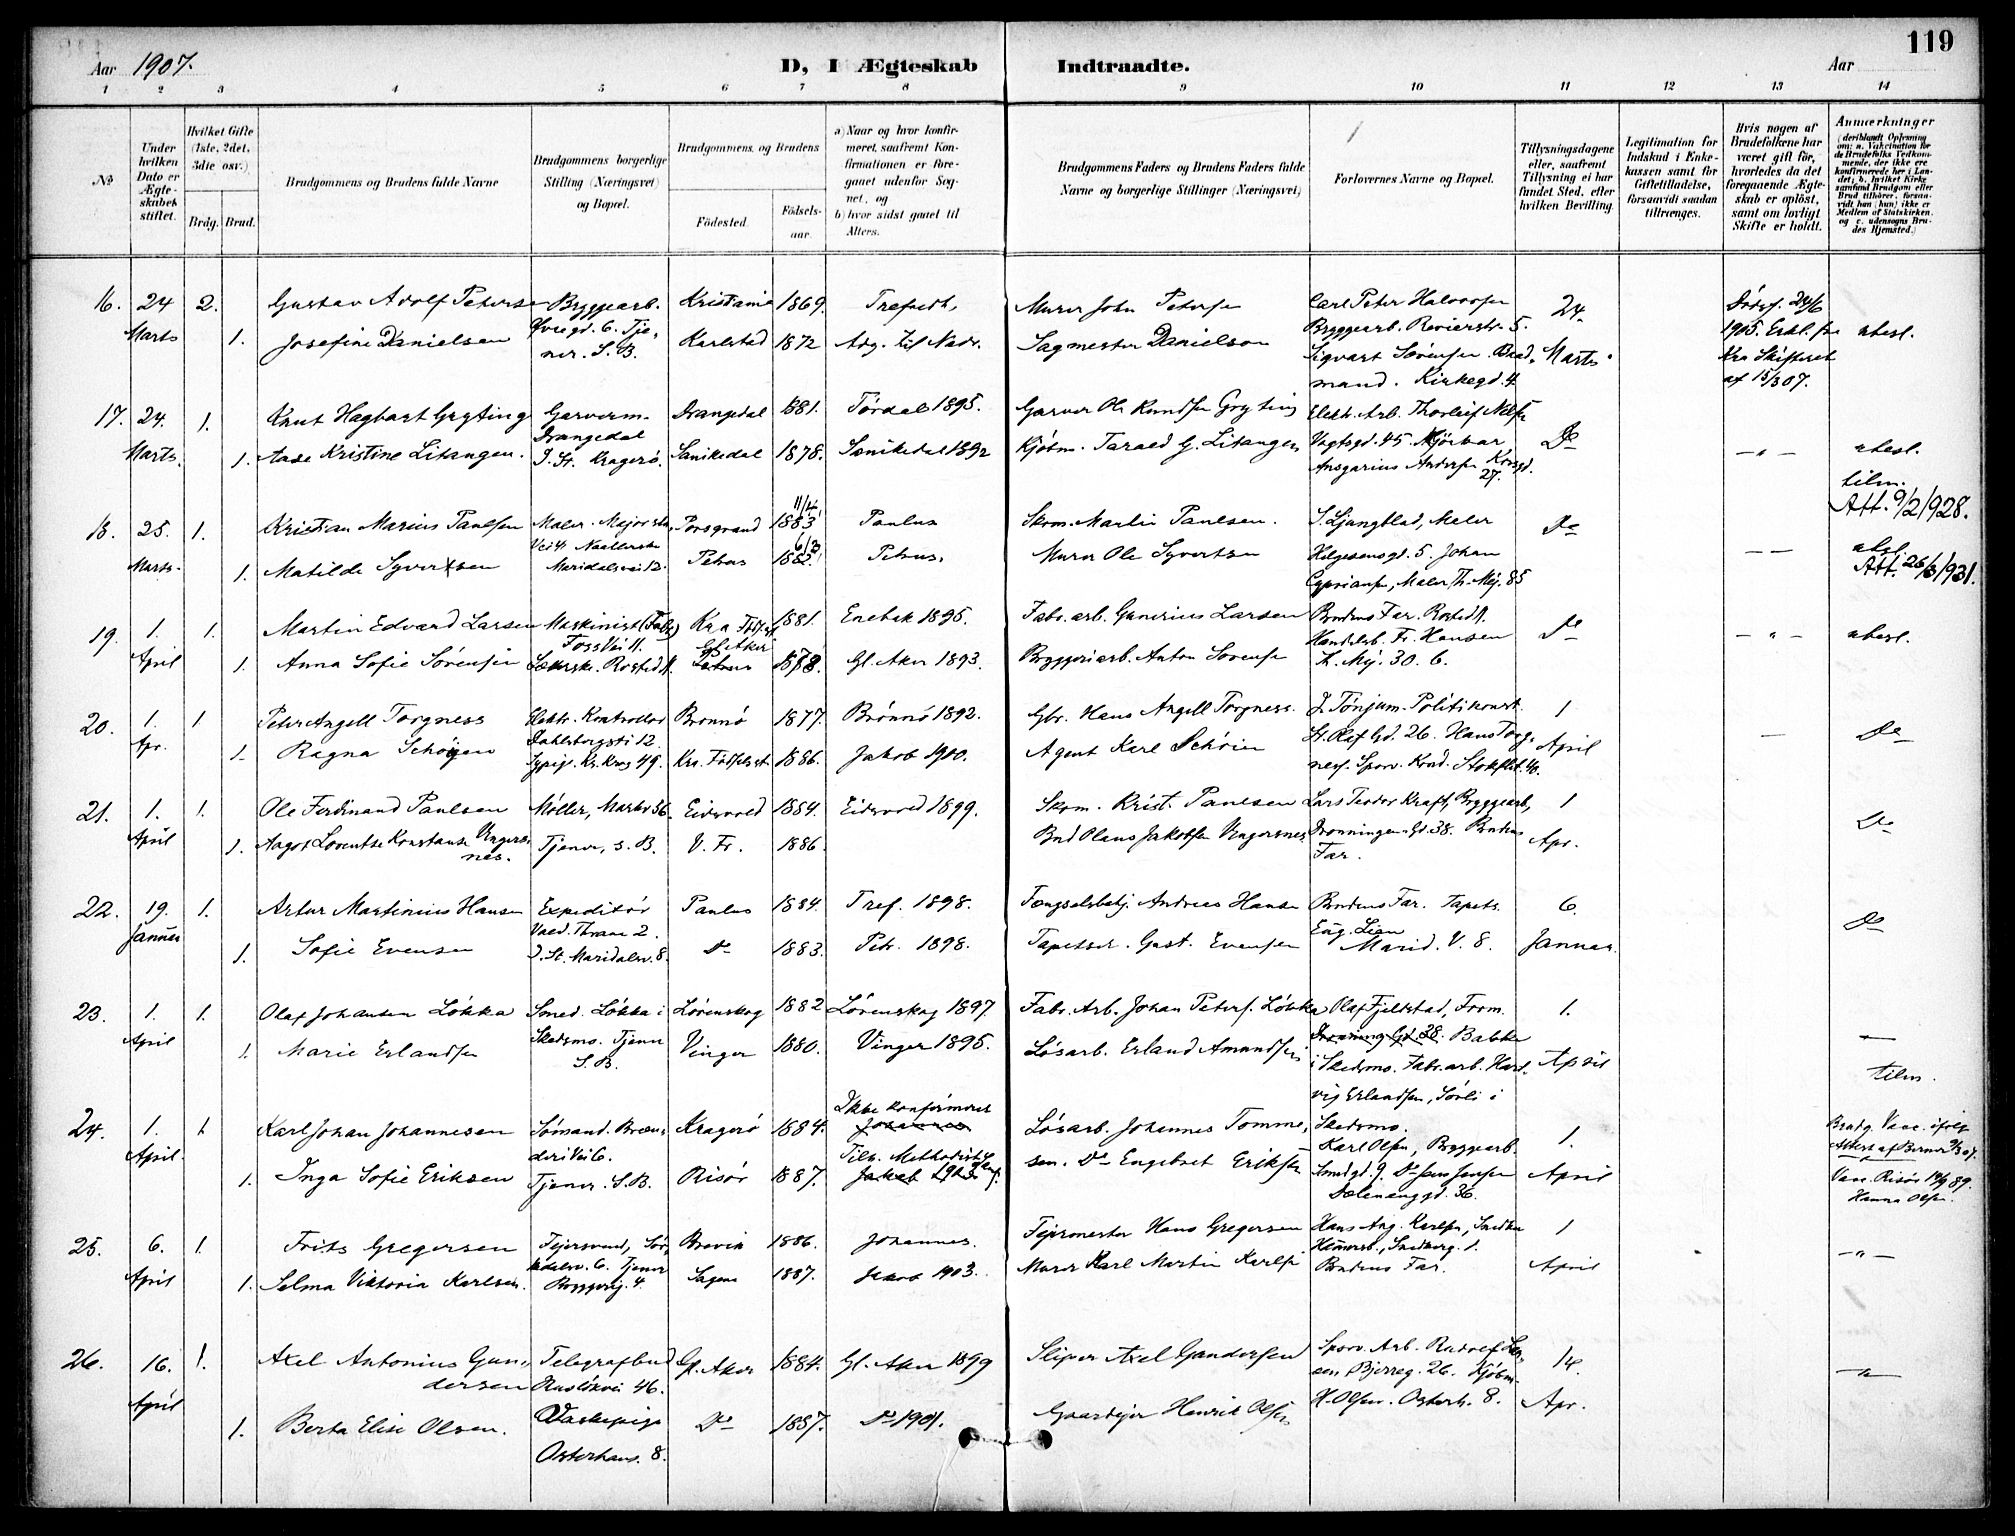 119
Aar 1907.
D, I Ægteskab Indtraadte.
Aar
1 2 3 4 5 6 7 8 9 10 11 12 13 14
№
Under hvilken Dato er Ægteskabet stiftet.
Hvilket Gifte (1ste, 2det, 3die osv.)
Brdg. Brud.
Brudgommens og Brudens fulde Navne
Brudgommens borgerlige Stilling (Næringsvei) og Bopæl.
Brudgommens og Brudens
Fødested.
Fødselsaar.
a) Naar og hvor konfirmeret, saafremt Konfirmationen er foregaaet udenfor Sognet, og
b) hvor sidst gaaet til Alters.
Brudgommens Faders og Brudens Faders fulde Navne og borgerlige Stillinger (Næringsvei)
Forlovernes Navne og Bopæl.
Tillysningsdagene eller, saafremt Tillysning ei har fundet Sted, efter hvilken Bevilling.
Legitimation for Indskud i Enkekassen samt for Giftetilladelse, forsaavidt saadan tiltrænges.
Hvis nogen af Brudefolkene har været gift før, hvorledes da det foregaaende Ægteskab er opløst, samt om lovligt Skifte er holdt.
Anmærkninger
(deriblandt Oplysning om: a. Vakcination for de Brudefolks Vedkommende, der ikke ere konfirmerede her i Landet; b. hvilket Kirkesamfund Brudgom eller Brud tilhører, forsaavidt han (hun) ikke er Medlem af Statskirken, og c. udensogns Brudes Hjemsted.)
16. 24 Marts 2. Gustav Adolf Petersen Bryggearb. Kristiania 1869. Trefoldh, Murer John Petersen Carl Peter Halvorsen 24 Dødsf. 24/6
1. Josefine Danielsen Øvregd. 6. Tjener. S. B. Karlstad 1872 Adg. til Nadv. Sagmester Danielson Bryggearb. Revierstr. 5. Marts 1905. Erkl. fra abesl.
Sigvart Sørensen Brandmand. Kirkegd. 4 Kra Skifteret af 15/3 07.
17. 24. Marts. 1. Knut Hagbart Gryting Garverm. Drangedal 1881. Tørdal 1895. Garver Ole Knudsen Gryting Elektr. Arb. Thorleif Nilsen
1. Aase Kristine Litangen. Drangedal J. St. Kragerø. Sanikedal 1878. Sanikedal 1892 Kjøbm. Tarald G. Litangen Vogtsgd. 45. Do — „ — abesl.
Ansgarius Andersen Korsgd. 27. tilm.
Att. 9/2 1928.
18. 25. Marts. 1. Kristian Marius Paulsen Maler. Majorstu Porsgrund 11/4 1883 Paulus Skom. Martin Paulsen. J. Ljungblad, Maler Do
1. Matilde Syvertsen Maridalsvei 12. Petrus 6/3 1882. Petrus. Murer Ole Syvertsen Helgesensgd. 5. Johan — — abesl.
Cypriansen, Maler, Th. Mej. 85 Att. 26/3 1931.
19. 1. April 1. Martin Edvard Larsen Maskinist (Fabr) Kra Fødselsst 1881. Enebak 1895. Fabr. arb. Gunerius Larsen Brudens Far. Rosted 11. Do — „ — abesl.
FossVei 11. Gl. Aker Handelsb. Fr. Hansen
1. Anna Sofie Sørensen Rosted 11. 1878. Gl. Aker 1893. Bryggeriarb. Anton Sørensen Th. Mej. 30. 6.
20. 1. Apr. 1. Peter Angell Torgness Elektr. Kontrollør Brønnø 1877. Brønnø 1892. Gbr. Hans Angell Torgness. J. Tønjum. Politikonst. 1
Dahlsbergsti 12. St. Olaf Gd. 26. Hans Torg-
1. Ragna Schøyen Sypige. Kr. Krog 49. Kra. Fødselsst. 1886. Jakob 1900. Agent Karl Schøien ness. Sporv. Kond. Stokflet. 40. April — Do
21. 1. April 1. Ole Ferdinand Paulsen Møller, Markv 36. Eidsvold 1884. Eidsvold 1899. Skom. Krist. Paulsen Lars Teodor Kraft, Bryggearb, 1
1. Aagot Loventse Konstanse Vingersnes. Tjener, S. B. V. Fr. 1886. Bud Olaus Jakobsen Vingersnes Dronningens Gd. 38. Brudens Far. Apr. Do
22. 19. Januar 1. Artur Martinius Hansen Expeditør Paulus 1884. Tref. 1898. Fængselsbetj. Andreas Hansen Brudens Far. Tapets. 6.
Vald. Thrane 2. Eug. Lian
1. Sofie Evensen J. St. Maridalsv. 8. Do 1883. Petr. 1898. Tapetser. Gust. Evensen Marid. V. 8. Januar. Do
23. 1. April 1. Olaf Johansen Løkka Smed. Løkka i Lørenskog 1882 Lørenskog 1897. Fabr. Arb. Johan Peters. Løkka Olaf Fjeldstad, Form. 1.
1. Marie Erlandsen Skedsmo. Tjener S. B. Vinger 1880. Vinger 1895. Løsarb. Erland Amundsen Dronning Gd. 38. Bakke i Skedsmo. Fabr. arb. Hartvig Erlandsen, Sørli i Skedsmo. April —
tilm.
24. 1. April. 1. Karl Johan Johannesen Sømand. Brænderivei 6. Kragerø 1884. Ikke konfirmeret Johannes Løsarb. Johannes Tomme,sen. Karl Olsen, Bryggearb. 1. Brudg. Vacc. ifølge Attest af Berner 2/3 07.
1. Inga Sofie Eriksen Tjener. S. B. Risør 1887. Tilh. Methodist Jakob 1903 Do Engebret Eriksen Smedgd. 9. Do Jens Jensen Dælenenggd. 36. April Vacc. Risør 14/9 89. Hanna Olsen.
25. 6. April 1. Frits Gregersen Feiersvend, Brevik 1886. Johannes. Feiermester Hans Gregersen Hans Aug. Karlsen, Snedker 1
1. Selma Viktoria Karlsen. 6. Tjener Bryggerig. 4. Sagene 1887. Jakob 1903. Murer Karl Martin Karlsen Brudens Far. April — „ —
26. 16. April 1. Axel Antonius Gundersen Telegrafbud Gl. Aker 1884. Gl. Aker 1899 Sliper Axel Gundersen Sporv. Arb. Rudolf 14.
Ruseløkvei 46. Bjerreg. 26. Kjøbm.
1. Berta Elise Olsen. Vaskepige Osterhaus. 8. Do 1887. Do 1901. Gaardejer Henrik Olsen H. Olsen. Osterh. 8. Apr. — „ —